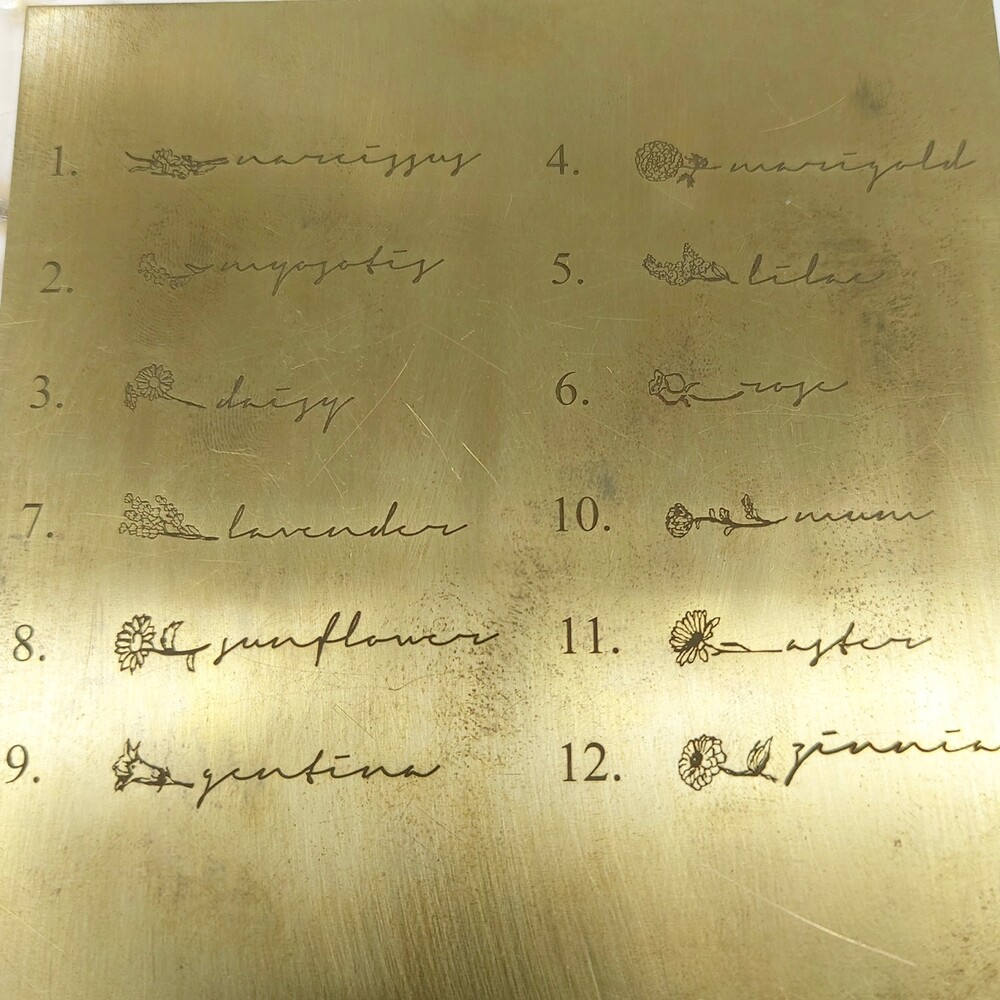 1. narcissus
2. myosotis
3. daisy
4. marigold
5. lilac
6. rose
7. lavender
8. sunflower
9. gentina
10. mum
11. aster
12. zinnia